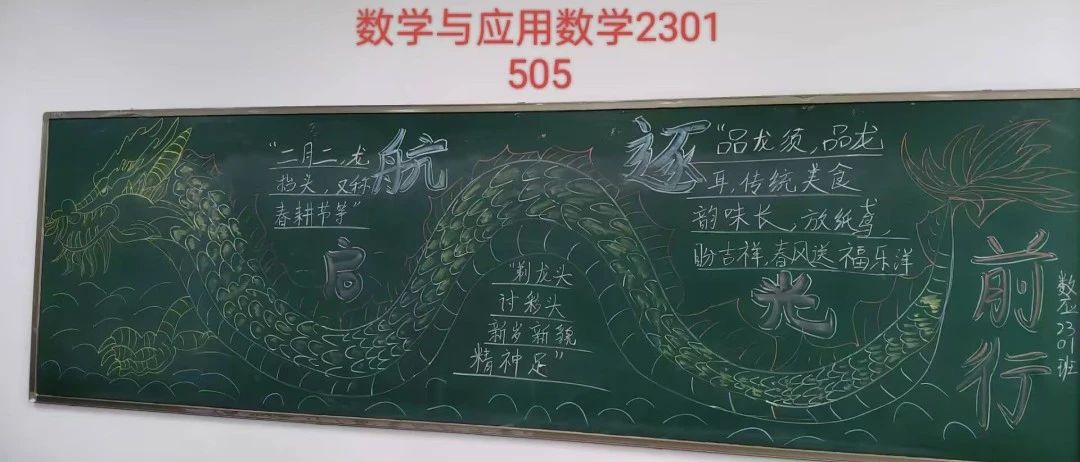 数学与应用数学2301
505
启航
逐光
前行
"二月二,龙
抬头,又称
春耕节等"
"剃龙头
讨彩头
新岁新貌
精神足"
"品龙须,品龙
耳,传统美食
韵味长,放纸鸢,
盼吉祥,春风送福乐洋
数应2301班